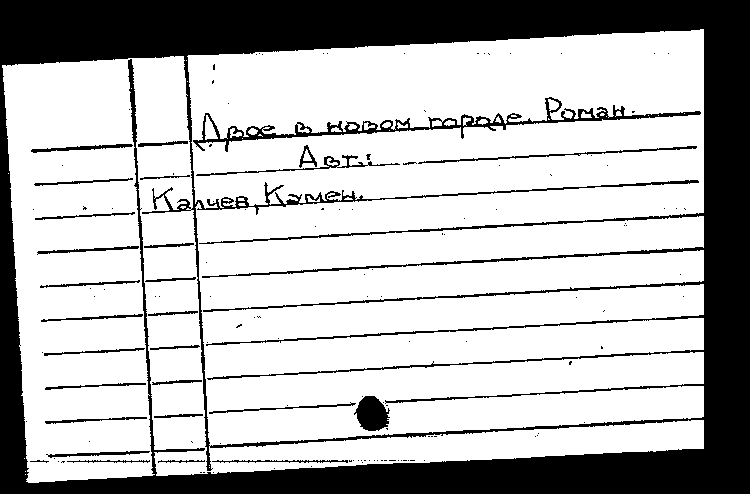 Двое в новом городе. Роман.
Авт.:
Калчев, Камен.